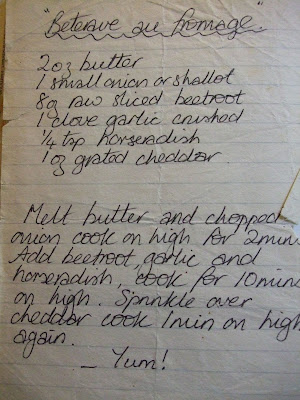 "Beterave au fromage"
2oz butter
1 small onion or shallot
8oz raw sliced beetroot
1 clove garlic crushed
1/4 tsp horseradish
1oz grated cheddar.
Melt butter and chopped
onion cook on high for 2mins
Add beetroot, garlic and
horseradish, cook for 10mins
on high. Sprinkle over
cheddar cook 1min on high
again.
– Yum!